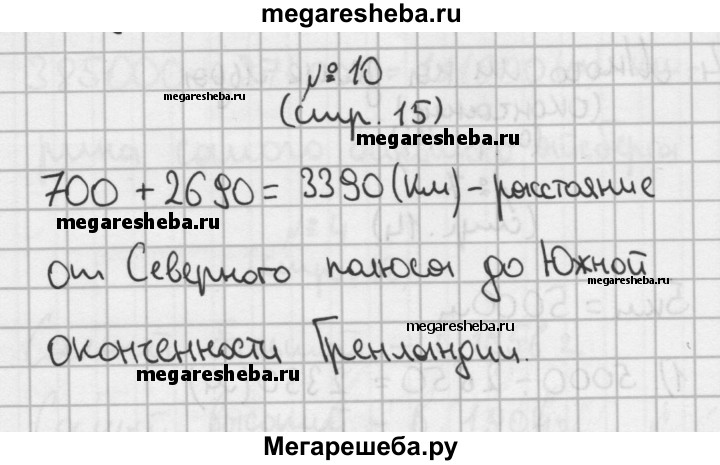 megaresheba.ru
№ 10
megaresheba.ru
(стр. 15)
megaresheba.ru
700 + 2690 = 3390 (км) - расстояние
megaresheba.ru
от Северного полюса до Южной
megaresheba.ru
megaresheba.ru
оконченности Гренландии.
megaresheba.ru
Мегарешеба.ру